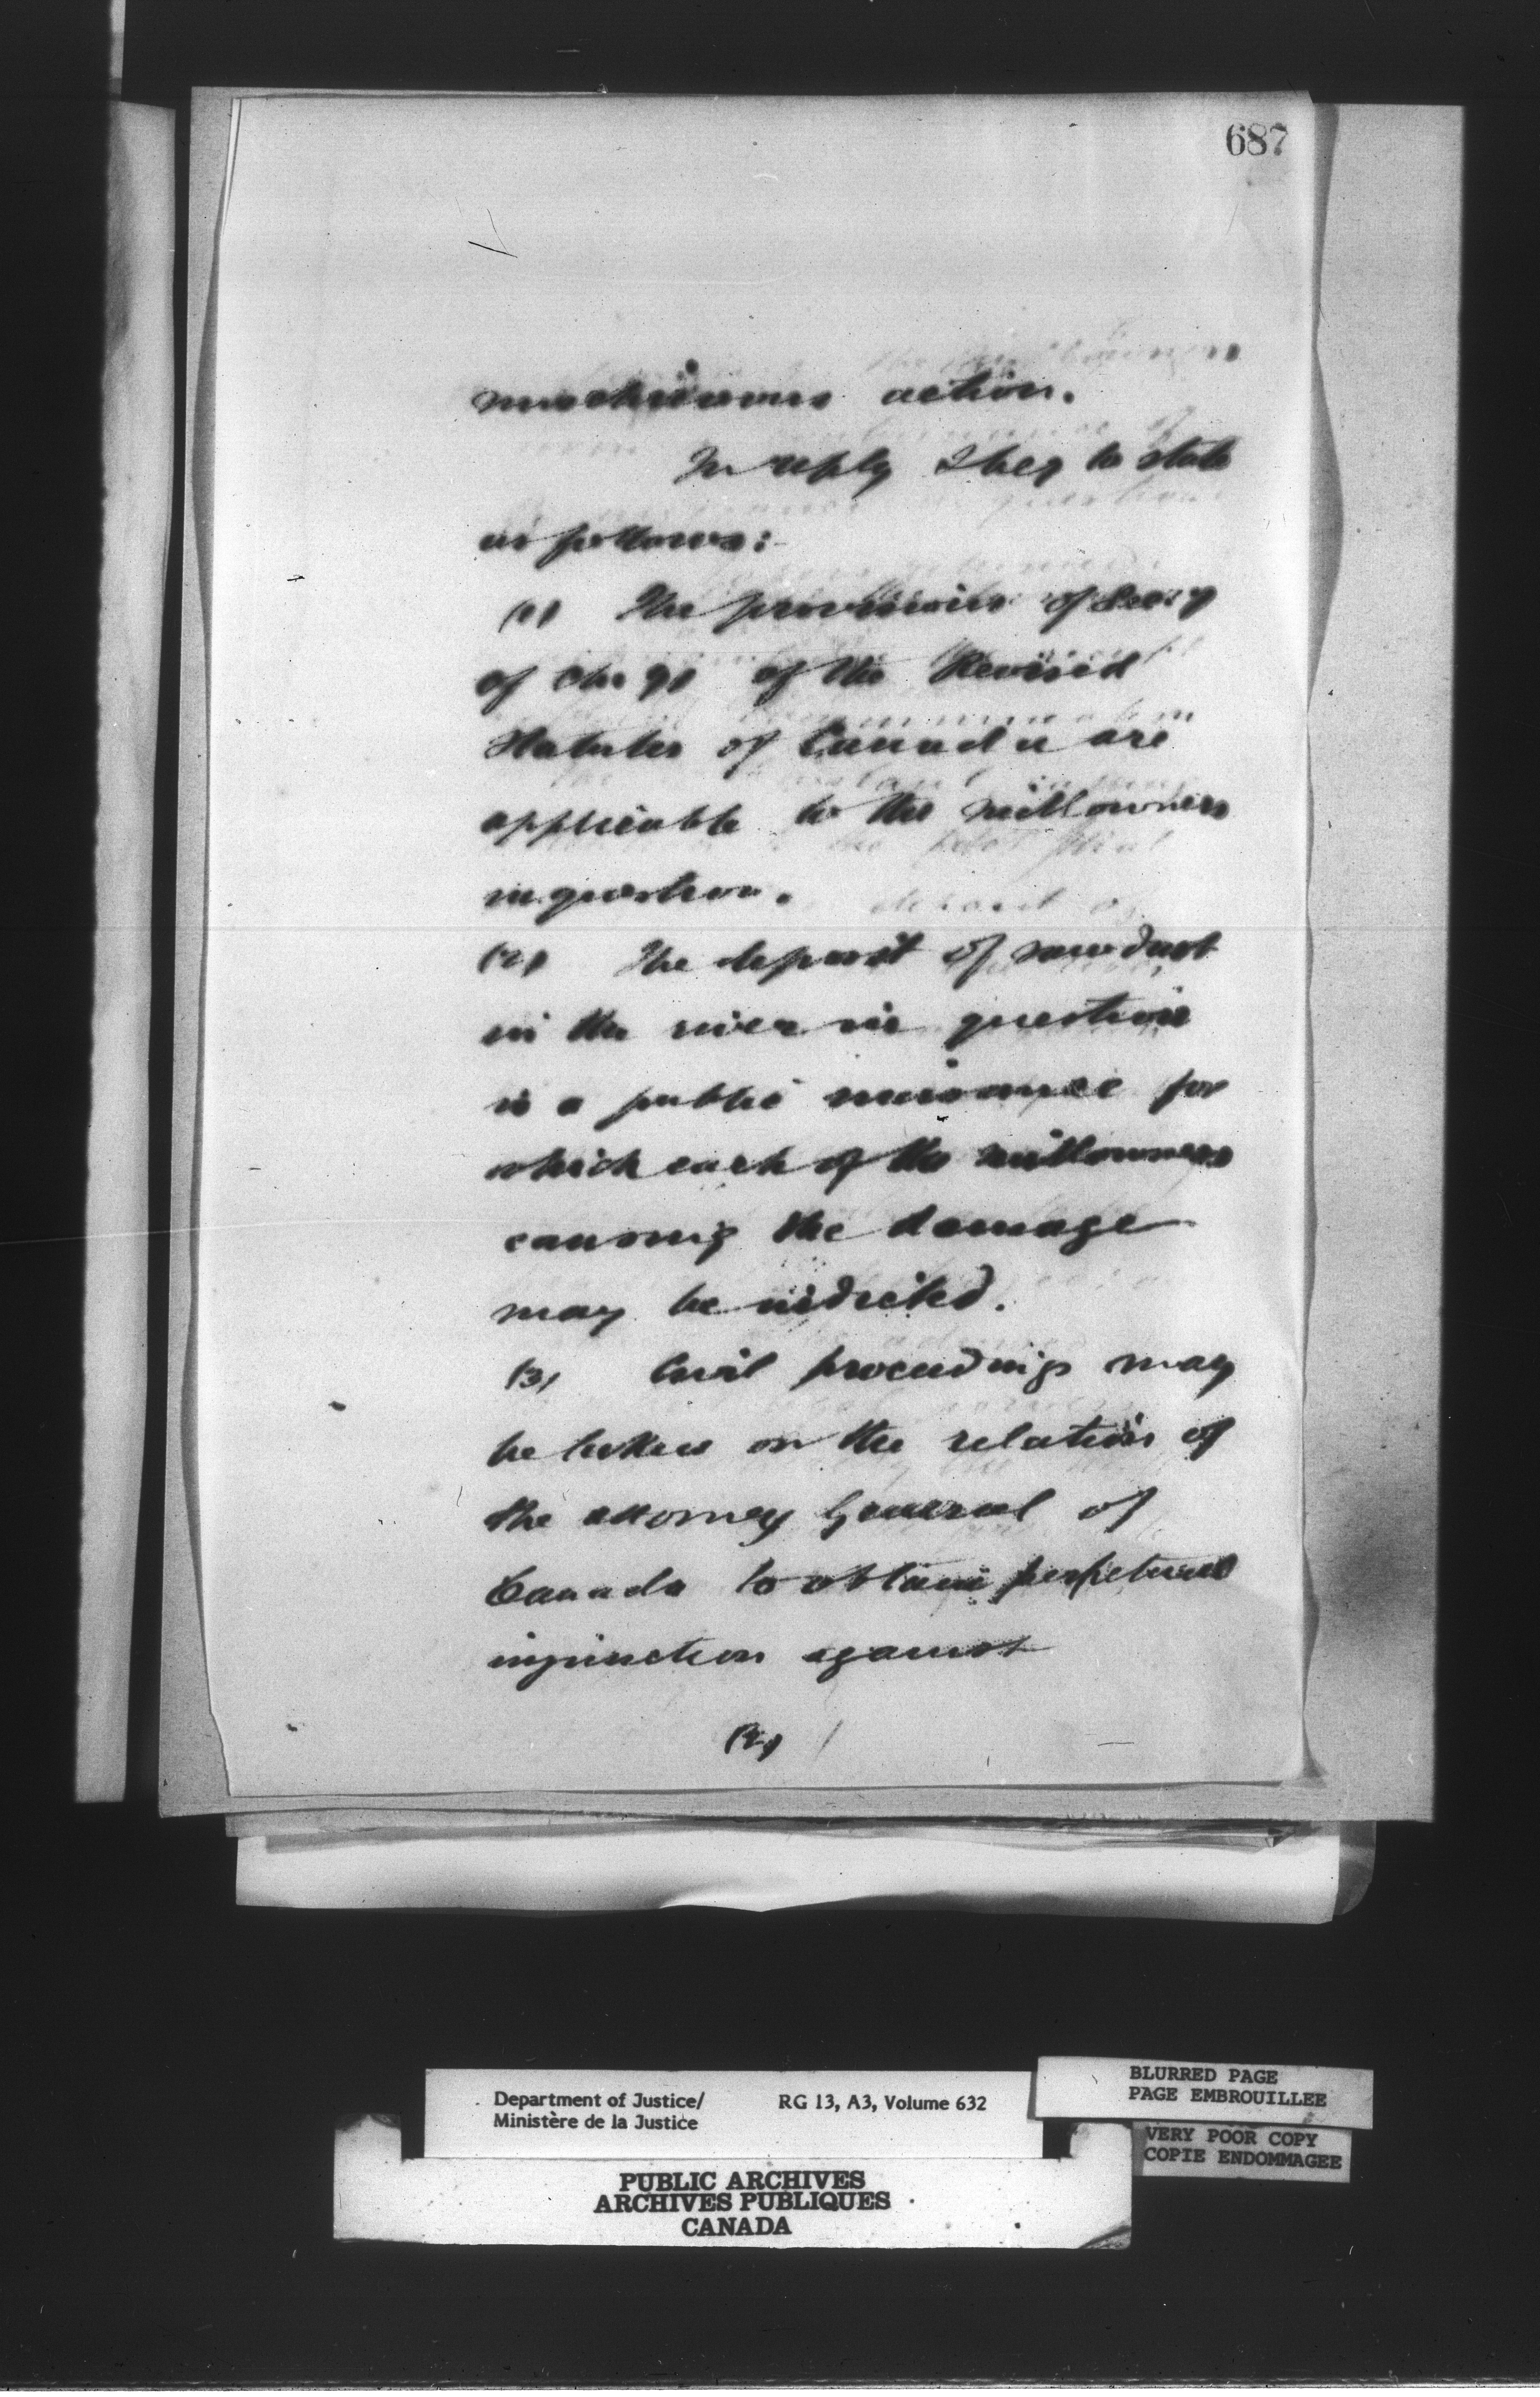 687
mischievous action.
In reply I beg to state
as follows:-
(1) The provisions of Sec. 7
of Chr 91 of the Revised
Statutes of Canada are
applicable to the millowners
in question.
(2) The deposit of sawdust
in the river in question
is a public nuisance for
which each of the millowners
causing the damage
may be indicted.
(3) Civil proceedings may
be taken on the relation of
the attorney General of
Canada to obtain perpetual
injunction against
(2)
Department of Justice/
Ministère de la Justice
RG 13, A3, Volume 632
BLURRED PAGE
PAGE EMBROUILLEE
VERY POOR COPY
COPIE ENDOMMAGEE
PUBLIC ARCHIVES
ARCHIVES PUBLIQUES
CANADA